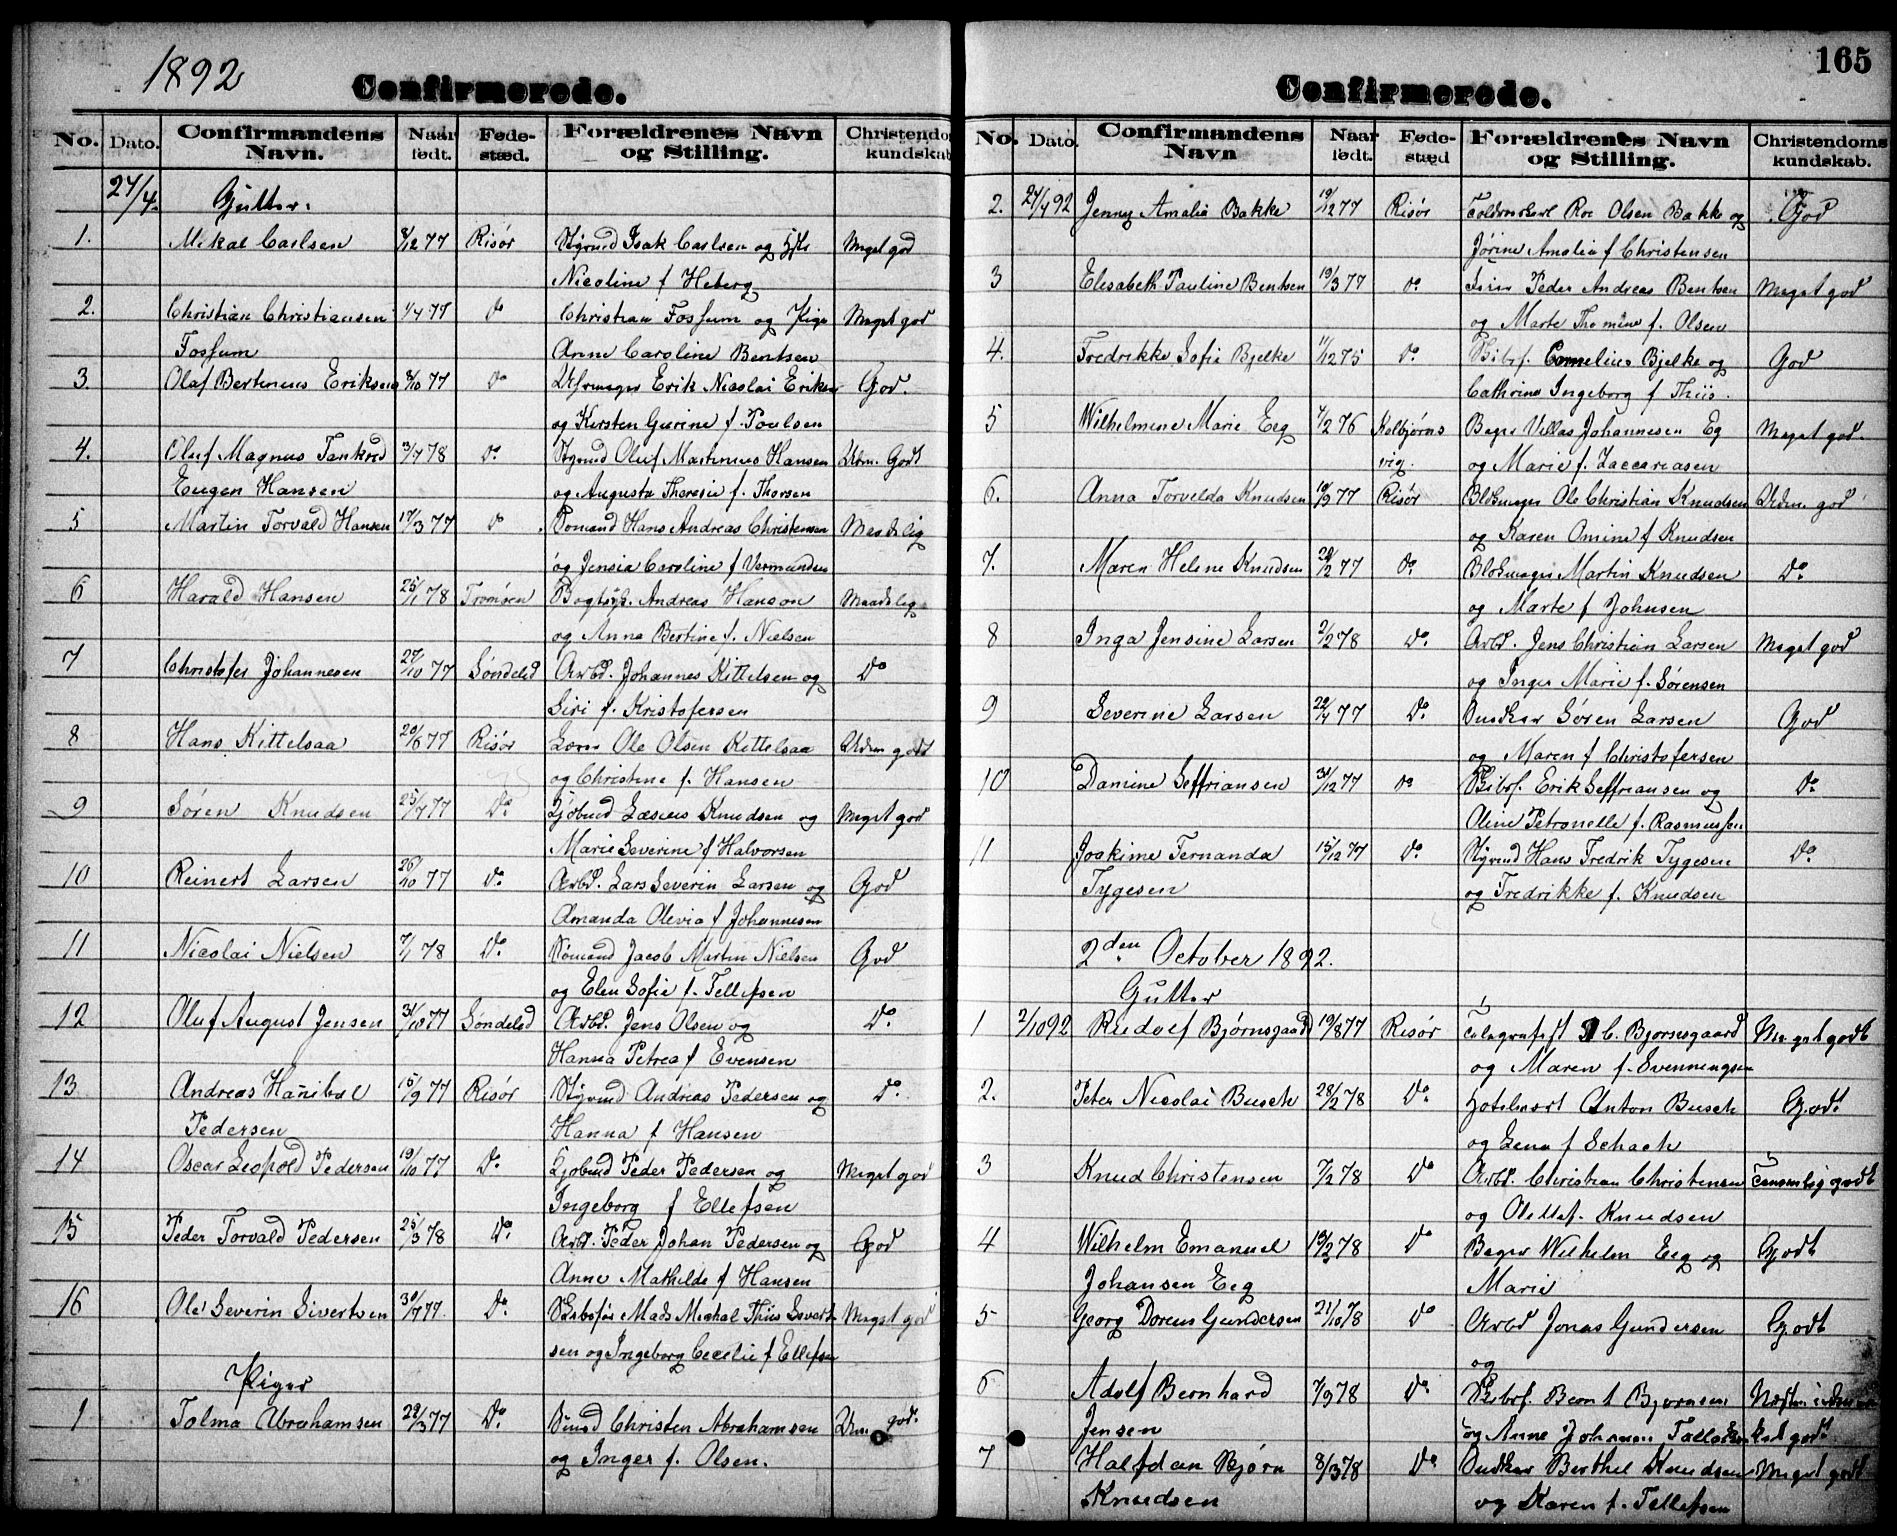 1892
Confirmerede.
No. Dato. Confirmandens Navn. Naar født. Føde-stæd. Forældrenes Navn og Stilling. Christendomskundskab
27/4. Gutter.
1. Mikal Carlsen 8/12 77 Risør Isak Carlsen og Meget god
Nicoline f Heberg
2. Christian Christiansen 1/4 77 do Christian Fossum og Pige Meget god
Fossum Anne Caroline Bentsen
3. Olaf Bertinius Eriksen 8/10 77 do Erik Nicolai Eriksen God.
og Kirsten Gurine f. Poulsen
4. Oluf Magnus Tankred 3/4 78 do Styrmd Oluf Martinius Hansen Udm. Godt
Eugen Hansen og Augusta Theresie f. Thorsen
5 Martin Torvald Hansen 17/3 77 do Sømand Hans Andreas Christensen Maadelig
og Jensia Caroline f Vermundsen
6 Harald Hansen 25/1 78 Tromøen Andreas Hanson Maadelig
og Anna Bertine f. Nielsen
7 Christofer Johannesen 27/10 77 Søndeled Arbd. Johannes Kittelsen og Do
Siri f. Kristofersen
8 Hans Kittelsaa 20/6 77 Risør Ole Olsen Kittelsaa Udm godt
og Christine f. Hansen
9 Søren Knudsen 25/7 77 Do Knudsen og Meget god
Marie Severine f Halvorsen
10 Reinert Larsen 26/10 77 Do Arbd. Lars Severin Larsen og God
Amanda Olevia f Johannesen
11 Nicolai Nielsen 7/1 78 Do Sømand Jacob Martin Nielsen God
og Elen Sofie f. Tellefsen
12 Oluf August Jensen 31/10 77 Søndeled Arbd. Jens Olsen og Do
Hanna Petrea f Evensen
13 Andreas Hanibal 15/9 77 Risør Styrmd Andreas Pedersen og Do
Pedersen Hanna f Hansen
14 Oscar Leopold Pedersen 19/10 77 Do Peder Pedersen og Meget god
Ingeborg f Ellefsen
15 Peder Torvald Pedersen 25/3 78 Do Arbd. Peder Johan Pedersen og God
Anne Mathilde f Hansen
16 Ole Severin Sivertsen 30/7 77 Do Skibsfør Mads Michal Thiis Sivert- Meget god
sen og Ingeborg Cecilie f Ellefsen
Piger
1 Tolma Abrahamsen 29/3 77 Do Christen Abrahamsen Udm god.
og Inger f. Olsen.
165
Confirmerede.
No. Dato. Confirmandens Navn Naar født. Føde-stæd Forældrenes Navn og Stilling. Christendomskundskab.
2. 27/4 92 Jenny Amalia Bakke 19/12 77 Risør Roe Olsen Bakke og God
Jørine Amalia f Christensen
3 Elisabeth Pauline Bentsen 19/3 77 do Peder Andreas Bentsen Meget god
og Marte Thomine f. Olsen
4. Fredrikke Sofie Bjelke 11/12 75 Do Skibsf. Cornelius Bjelke og God
Cathrine Ingeborg f Thiis.
5 Wilhelmine Marie Eeg 4/2 76 Kolbjørns Bager Villas Johannesen Eg Meget god.
vig. og Marie f. Zaccariasen
6. Anna Torvelda Knudsen 10/9 77 Risør Blokmager Ole Christian Knudsen Udm. god
og Karen Omine f Knudsen
7. Maren Helene Knudsen 20/2 77 Do Blokmager Martin Knudsen Do
og Marte f Johnsen
8 Inga Jensine Larsen 2/2 78 Do Arbd. Jens Christian Larsen Meget god
og Inger Marie f. Sørensen
9 Severine Larsen 22/4 77 Do Søren Larsen God
og Maren f Christofersen
10 Danine Seffriansen 31/12 77 do Skibsf. Erik Seffriansen og Do
Oline Petronelle f. Rasmussen
11 Joakime Fernanda 15/12 77 Do Styrmd Hans Fredrik Tygesen Do
Tygesen og Fredrikke f. Knudsen
2den October 1892.
Gutter
1 2/10 92 Rudolf Bjørnsgaard 19/8 77 Risør Telegrafist C. Bjørnsgaard Meget godt
og Maren f. Svenningsen
2. Peter Nicolai Busch 28/2 78 Do Hotelvært Anton Busch Godt
og Lena f Schach
3 Knud Christensen 7/2 78 Do Arbd. Christian Christensen Temmelig godt
og f. Knudsen
4 Wilhelm Emanuel 13/2 78 Do Bager Wilhelm Eeg og Godt
Johansen Eeg Marie
5 Georg Doreus Gundersen 21/10 78 Do Arbd Jonas Gundersen Godt
og
6 Adolf Bernhard 7/9 78 Do Skibsf. Bjørnsen Næsten
Jensen og Anne godt
7 Halfdan Bjørn 8/3 78 Do Berthel Knudsen Meget godt
Knudsen og Karen f. Tellefsen